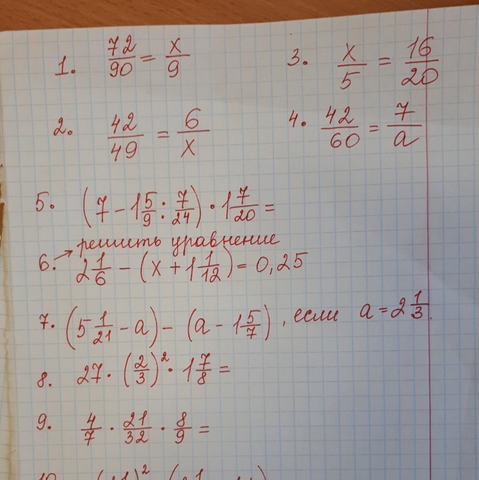 1. 72/90 = x/9
3. x/5 = 16/20
2. 42/49 = 6/x
4. 42/60 = 7/a
5. (7 - 1 5/9 : 7/24) · 1 7/20 =
решить уравнение
6. 2 1/6 - (x + 1 1/12) = 0,25
7. (5 1/21 - a) - (a - 1 5/7), если a = 2 1/3.
8. 27 · (2/3)² · 1 7/8 =
9. 4/7 · 21/32 · 8/9 =